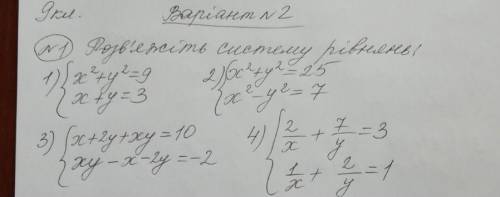 9кл. Варіант №2
№1 Розв'яжіть систему рівнянь:
1) { x²+y²=9
x+y=3
2) { x²+y²=25
x²-y²=7
3) { x+2y+xy=10
xy-x-2y=-2
4) { 2/x + 7/y = 3
1/x + 2/y = 1